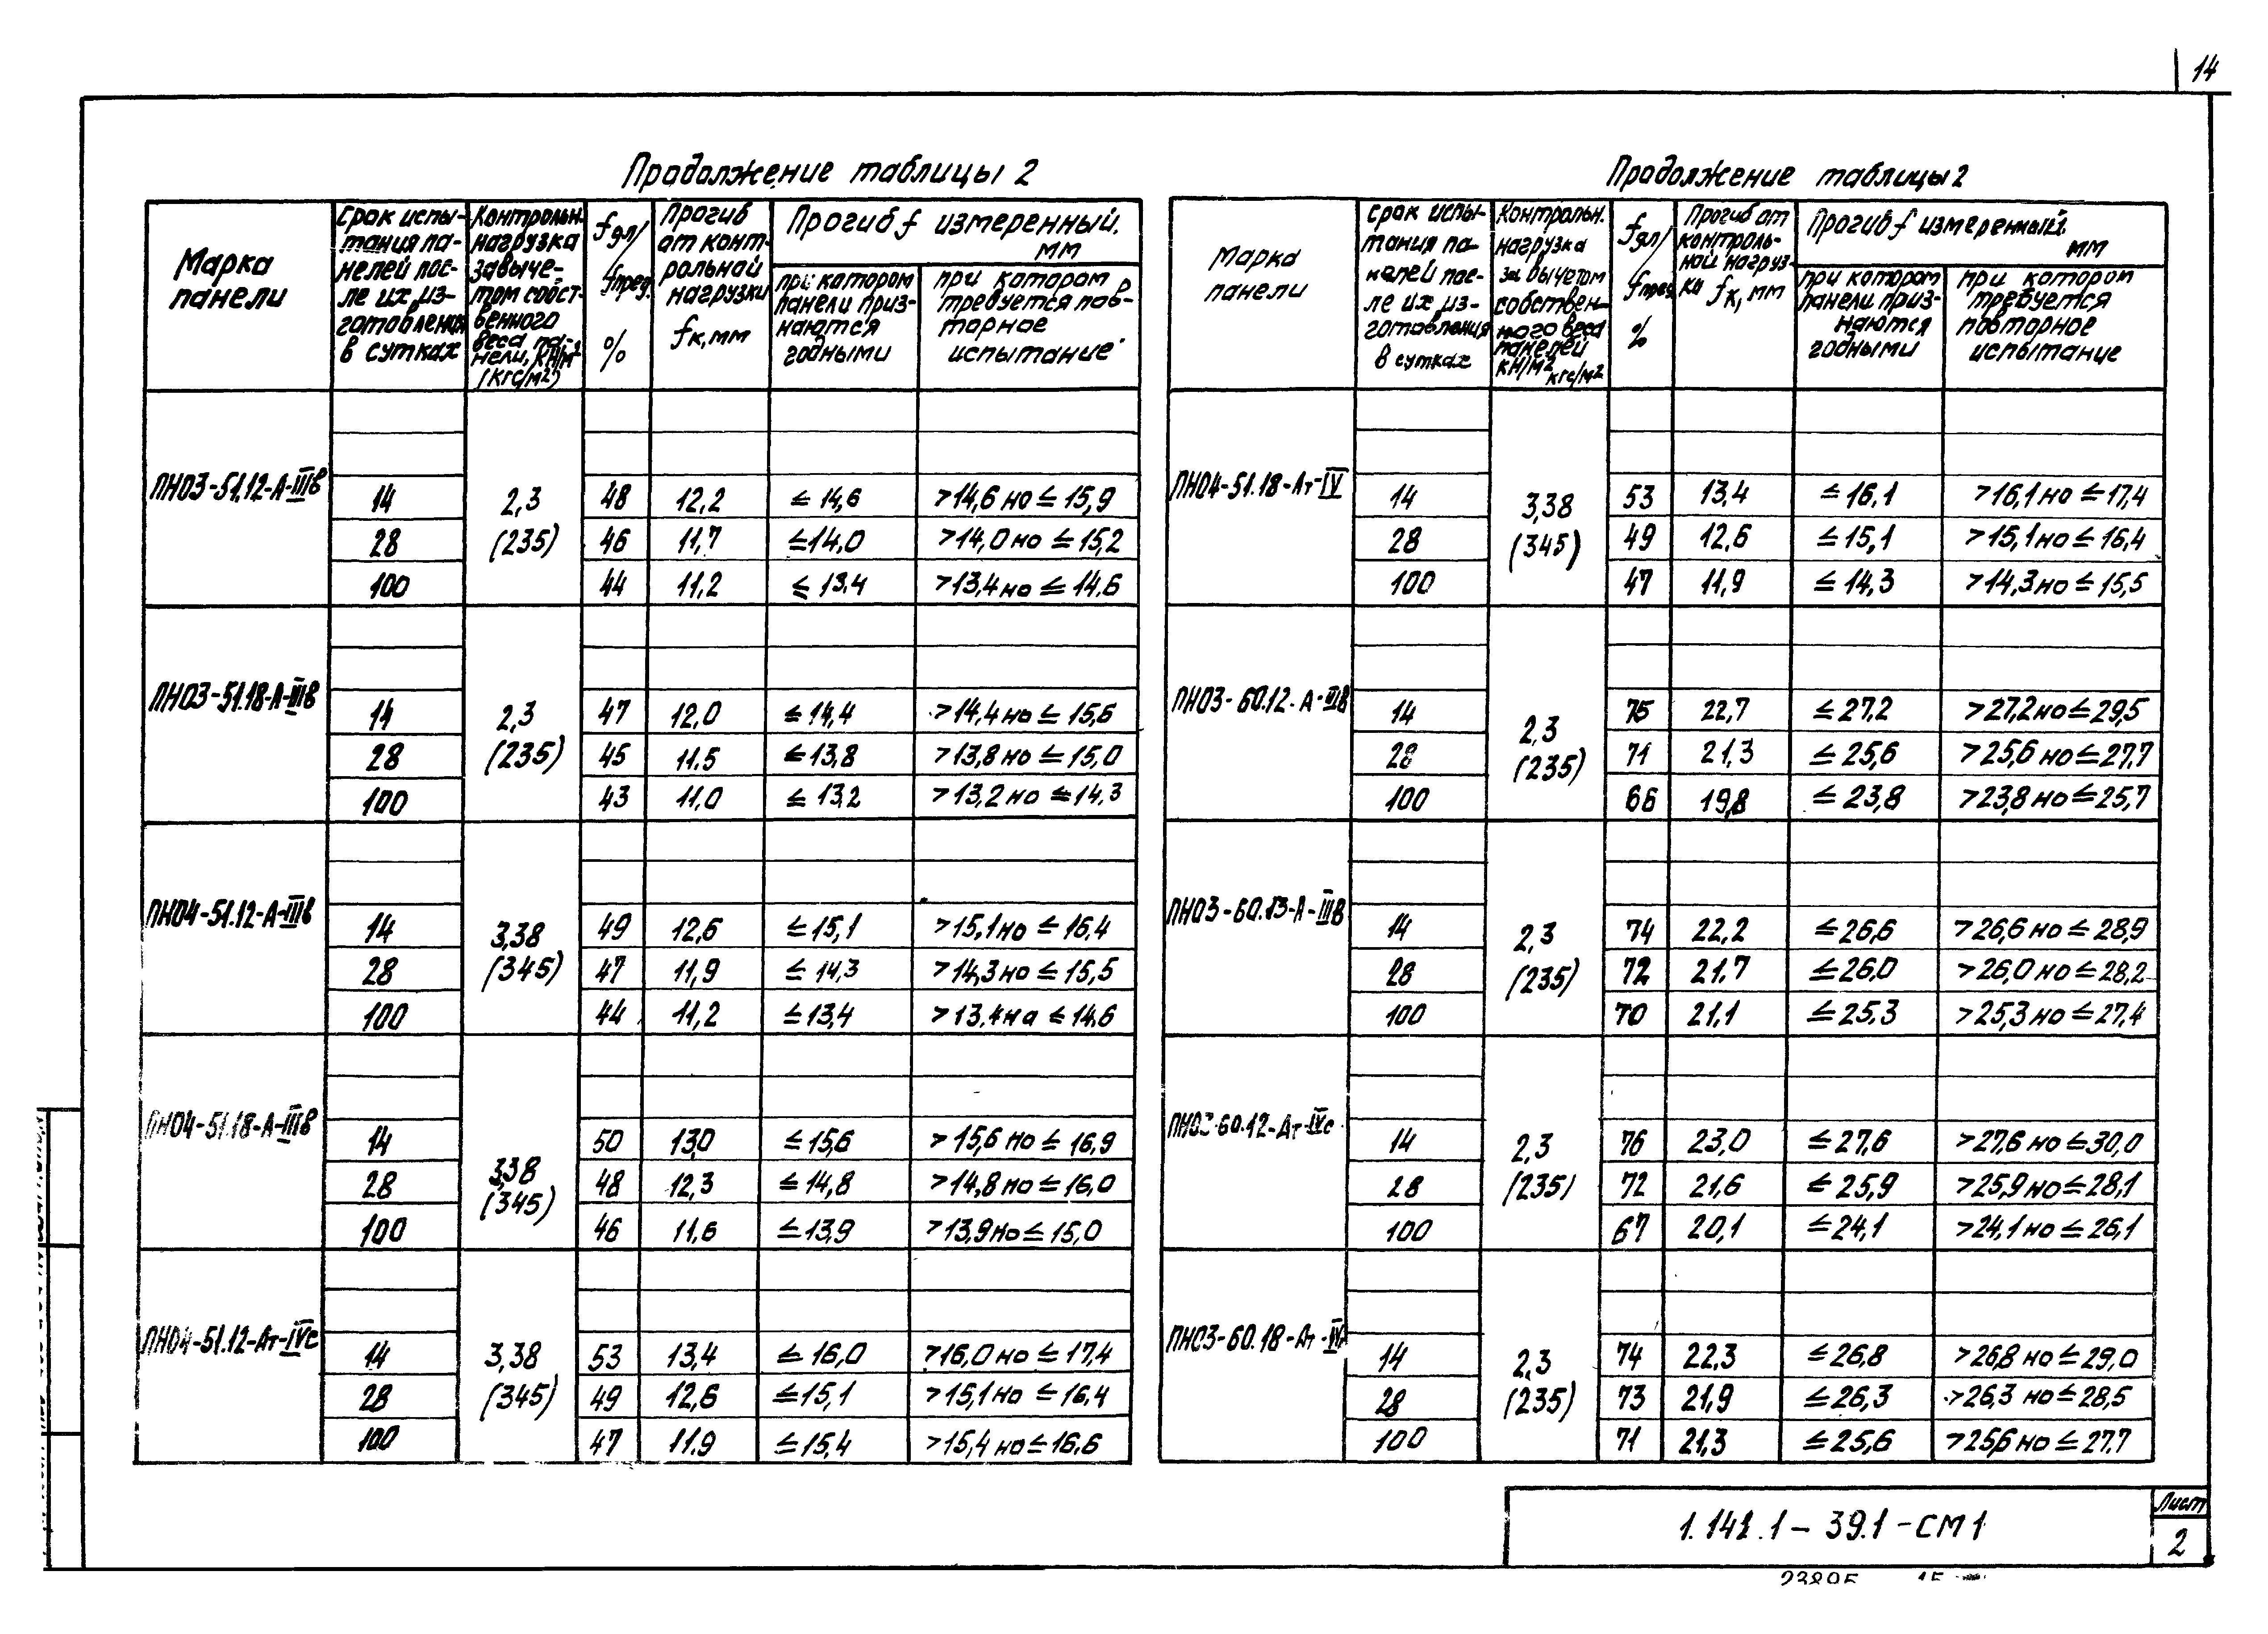 14
Продолжение таблицы 2
Марка панели
Срок испытания панелей после их изготовления в сутках
Контрольн. нагрузка за вычетом собственного веса панели, кН/м² (кгс/м²)
fдл/fпред. %
Прогиб от контрольной нагрузки fк, мм
Прогиб f измеренный, мм
при котором панели признаются годными
при котором требуется повторное испытание
ПН03-51.12-А-IIIв 2,3 (235)
14 48 12,2 ≤ 14,6 >14,6 но ≤ 15,9
28 46 11,7 ≤14,0 >14,0 но ≤ 15,2
100 44 11,2 ≤ 13,4 >13,4 но ≤ 14,6
ПН03-51.18-А-IIIв 2,3 (235)
14 47 12,0 ≤ 14,4 >14,4 но ≤ 15,6
28 45 11.5 ≤13,8 >13,8 но ≤ 15,0
100 43 11,0 ≤ 13,2 >13,2 но ≤ 14,3
ПН04-51.12-А-IIIв 3,38 (345)
14 49 12,6 ≤ 15,1 >15,1 но ≤ 16,4
28 47 11,9 ≤ 14,3 >14,3 но ≤ 15,5
100 44 11,2 ≤ 13,4 >13,4 но ≤ 14,6
ПН04-51.18-А-IIIв 3,38 (345)
14 50 13,0 ≤ 15,6 >15,6 но ≤ 16,9
28 48 12,3 ≤ 14,8 >14,8 но ≤ 16,0
100 46 11,6 ≤ 13,9 >13,9 но ≤ 15,0
ПН04-51.12-Ат-IVс 3,38 (345)
14 53 13,4 ≤ 16,0 >16,0 но ≤ 17,4
28 49 12,6 ≤ 15,1 >15,1 но ≤ 16,4
100 47 11.9 ≤ 15,4 >15,4 но ≤ 16,6
Продолжение таблицы 2
Марка панели
Срок испытания панелей после их изготовления в сутках
Контрольн. нагрузка за вычетом собственного веса панелей кН/м² кгс/м²
fдл/fпред %
Прогиб от контрольной нагрузки fк, мм
Прогиб f измеренный мм
при котором панели признаются годными
при котором требуется повторное испытание
ПН04-51.18-Ат-IV 3,38 (345)
14 53 13,4 ≤ 16,1 >16,1 но ≤ 17,4
28 49 12,6 ≤ 15,1 >15,1 но ≤ 16,4
100 47 11,9 ≤ 14,3 >14,3 но ≤ 15,5
ПН03-60.12-А-IIIв 2,3 (235)
14 75 22,7 ≤ 27,2 >27,2 но ≤ 29,5
28 71 21,3 ≤ 25,6 >25,6 но ≤ 27,7
100 66 19,8 ≤ 23,8 >23,8 но ≤ 25,7
ПН03-60.13-А-IIIв 2,3 (235)
14 74 22,2 ≤ 26,6 >26,6 но ≤ 28,9
28 72 21,7 ≤ 26,0 >26,0 но ≤ 28,2
100 70 21,1 ≤ 25,3 >25,3 но ≤ 27,4
ПН03-60.12-Ат-IVс 2,3 (235)
14 76 23,0 ≤ 27,6 >27,6 но ≤ 30,0
28 72 21,6 ≤ 25,9 >25,9 но ≤ 28,1
100 67 20,1 ≤ 24,1 >24,1 но ≤ 26,1
ПН03-60.18-Ат-IVс 2,3 (235)
14 74 22,3 ≤ 26,8 >26,8 но ≤ 29,0
28 73 21,9 ≤ 26,3 >26,3 но ≤ 28,5
100 71 21,3 ≤ 25,6 >25,6 но ≤ 27,7
1.141.1-39.1-СМ1
Лист
2